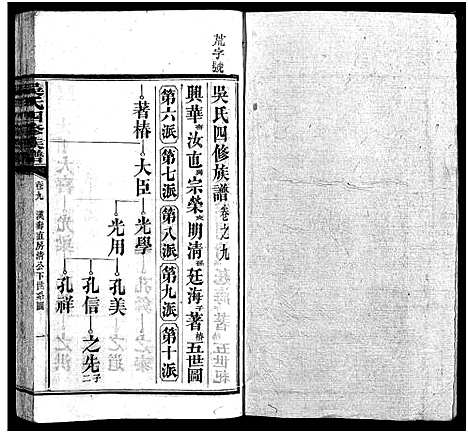 荒字號
吳氏四修族譜卷之九
興華裔汝直房宗榮支明清孫廷海子著椿五世圖
第六派 第七派 第八派 第九派 第十派
著椿 大臣 光學
光用 孔美
孔信 之先子二
孔祥
吳氏四修族譜
卷九 漢裔直房清公下世系圖 一